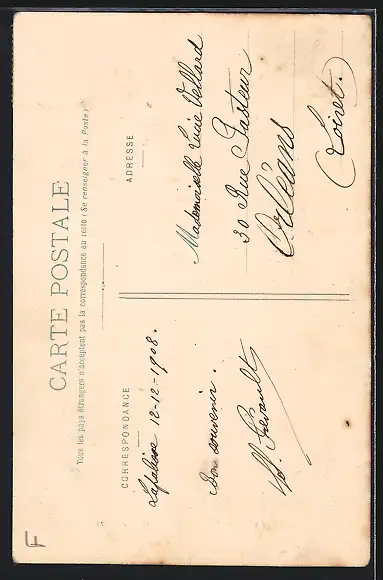 CARTE POSTALE
Tous les pays étrangers n'acceptent pas la correspondance au recto (Se renseigner à la Poste)
CORRESPONDANCE
12-12-1908.
Bon souvenir.
ADRESSE
Mademoiselle Lucie Vellard
30 Rue Pasteur
Orléans
(Loiret.)
F